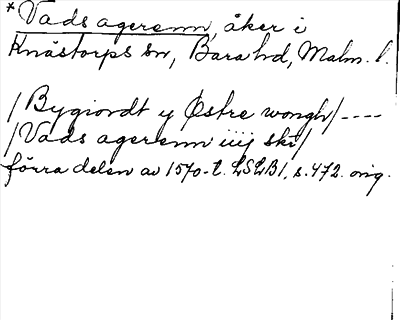 *Vads agerenn, åker i
Knästorps sn, Bara hd, Malm. l.
/Bygiordt y Østre wongh/----
/Vads agerenn iiij ski/
förra delen av 1570-t. LSLB1, s. 472. orig.